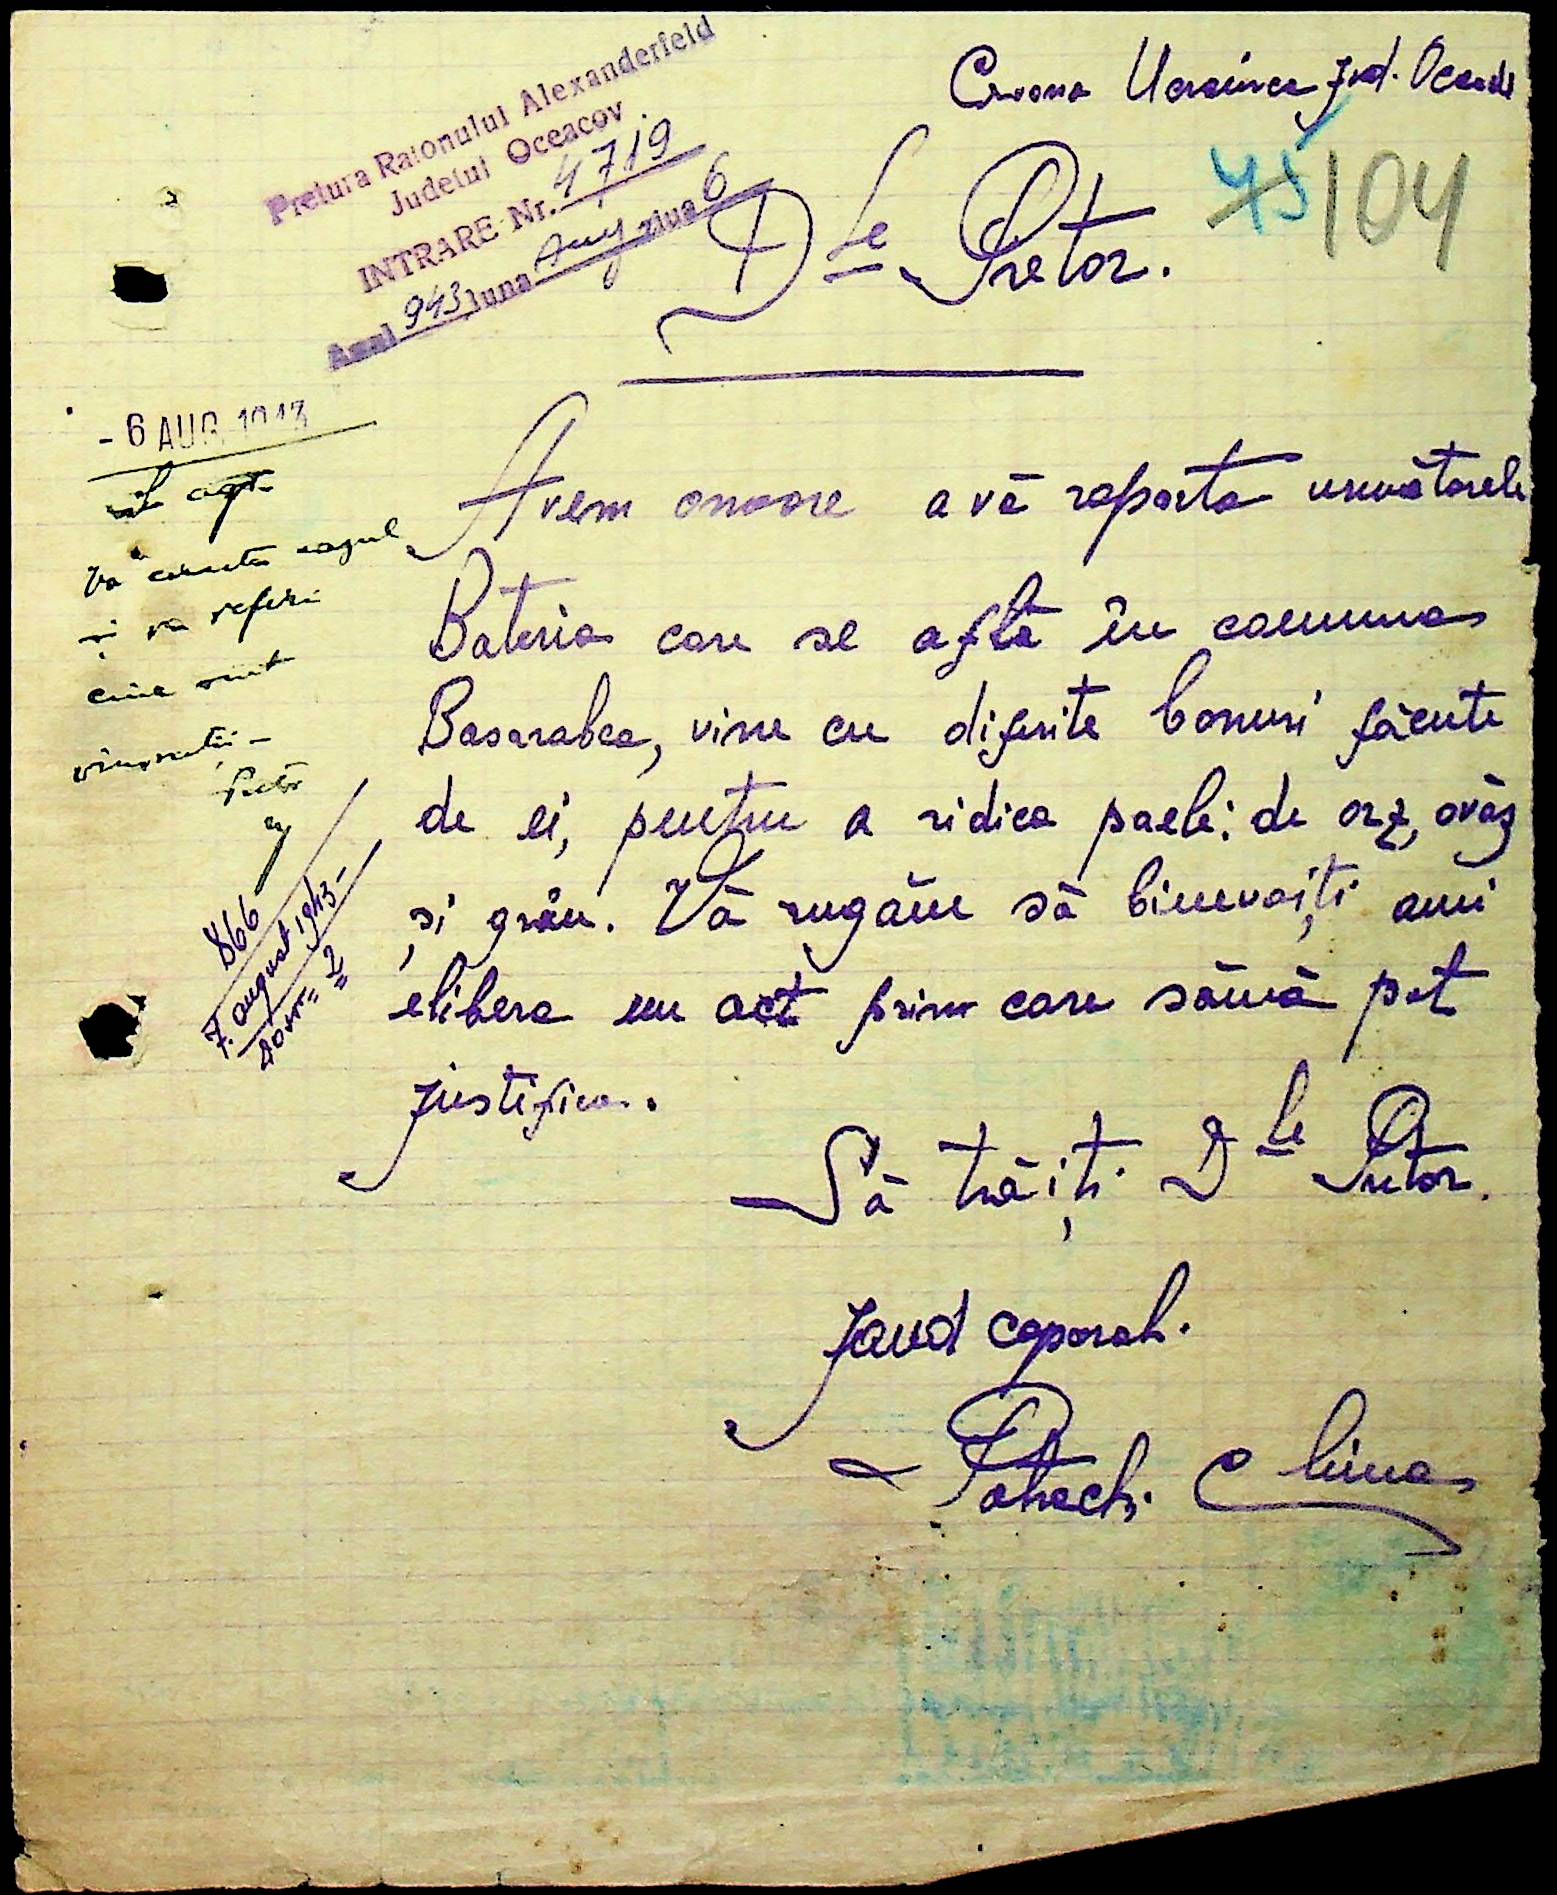 Pretura Raionului Alexanderfeld
Judetul Oceacov
INTRARE Nr. 4719
Anul 943 luna Aug ziua 6
Crvona Ucrainca Jud. Oceacov
75 104
Dle Pretor.
- 6 AUG. 1943
Va cerceta cazul
și va referi
cine sunt
vinovații -
Pretor
866
7. august 1943 -
Dosar = 2
Avem onoore a vă raporta urmatorele
Bateria care se află în comuna
Basarabca, vine cu diferite bonuri făcute
de ei, pentru a ridica paele: de orz, ovăz
și grâu. Vă rugăm să binevoiți ami
elibera un act prin care sămă pot
justifica.
Să trăiți Dle Pretor.
Jand caporal.